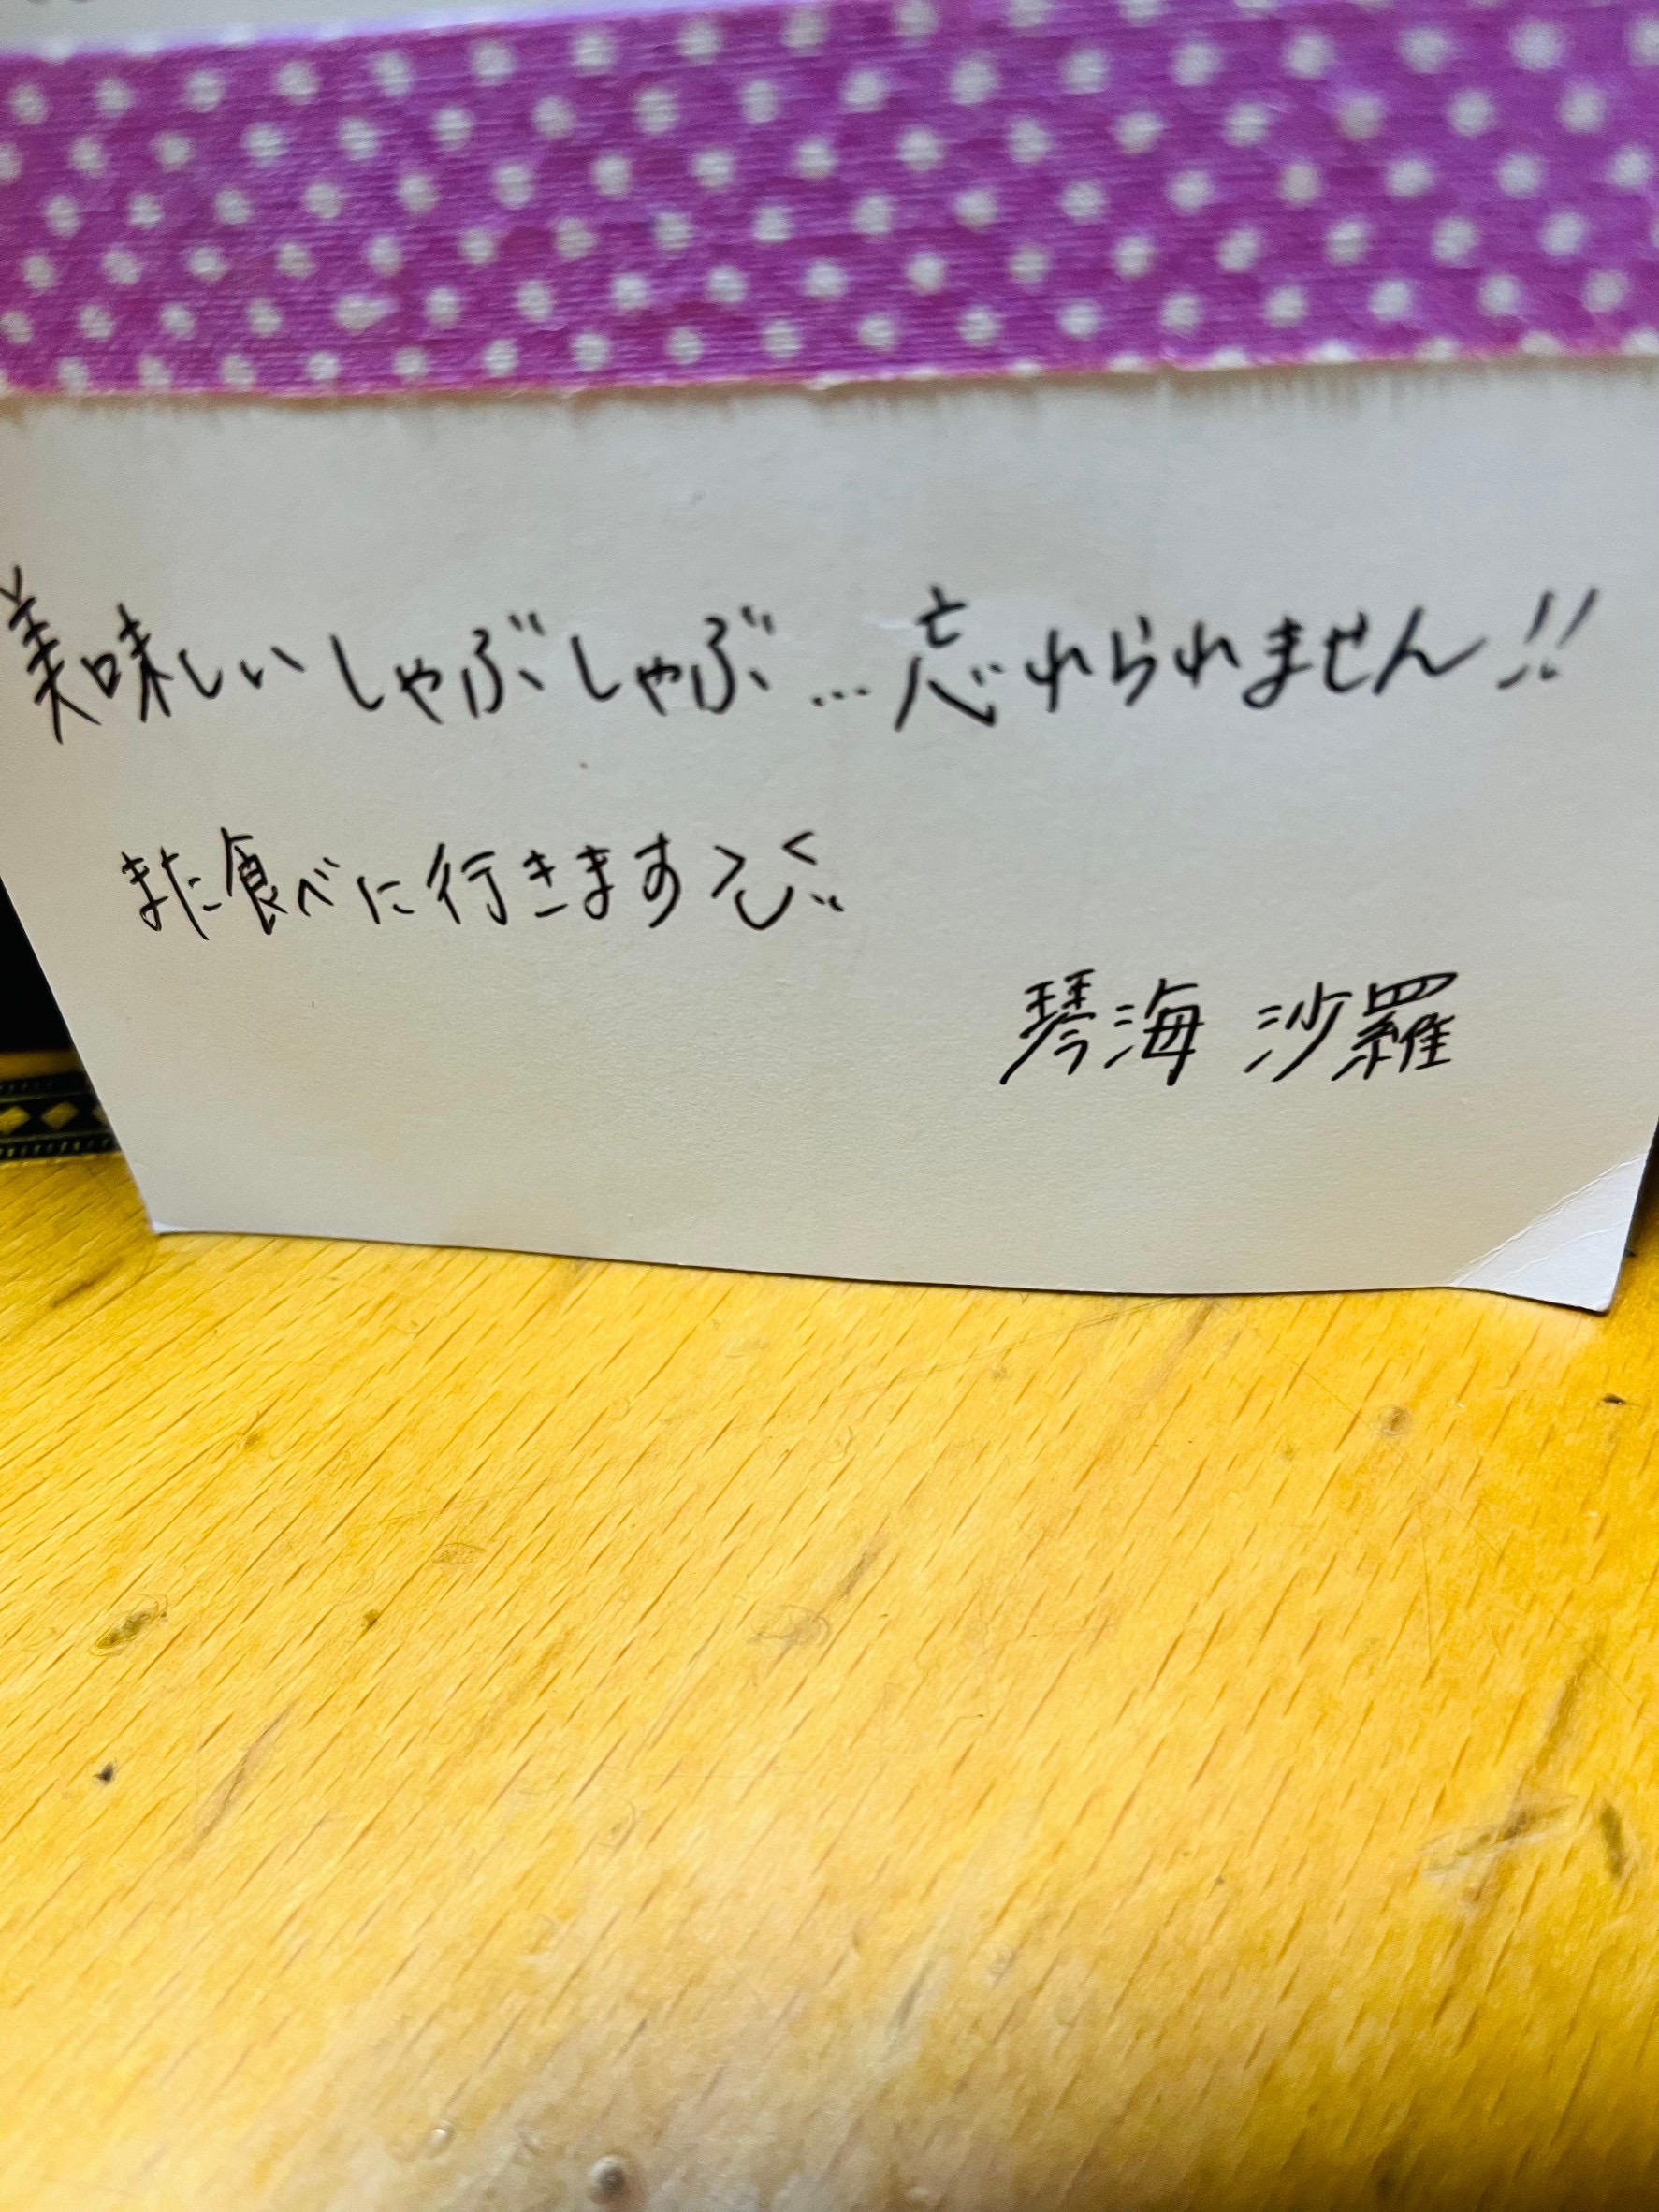 美味しいしゃぶしゃぶ…忘れられません!!
また食べに行きます
琴海 沙羅